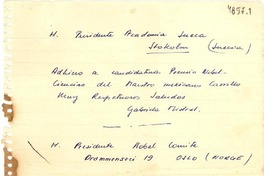 4857.1
H. Presidente Academia Sueca
Stokolm (Suecia)
Adhiero a candidatura Premio Nobel
Ciencias del Maestro mexicano Camilo
Henz Respetuosos Saludos
Gabriela Mistral.
H. Presidente Nobel Comite
Drammensvei 19 OSLO (NORGE)